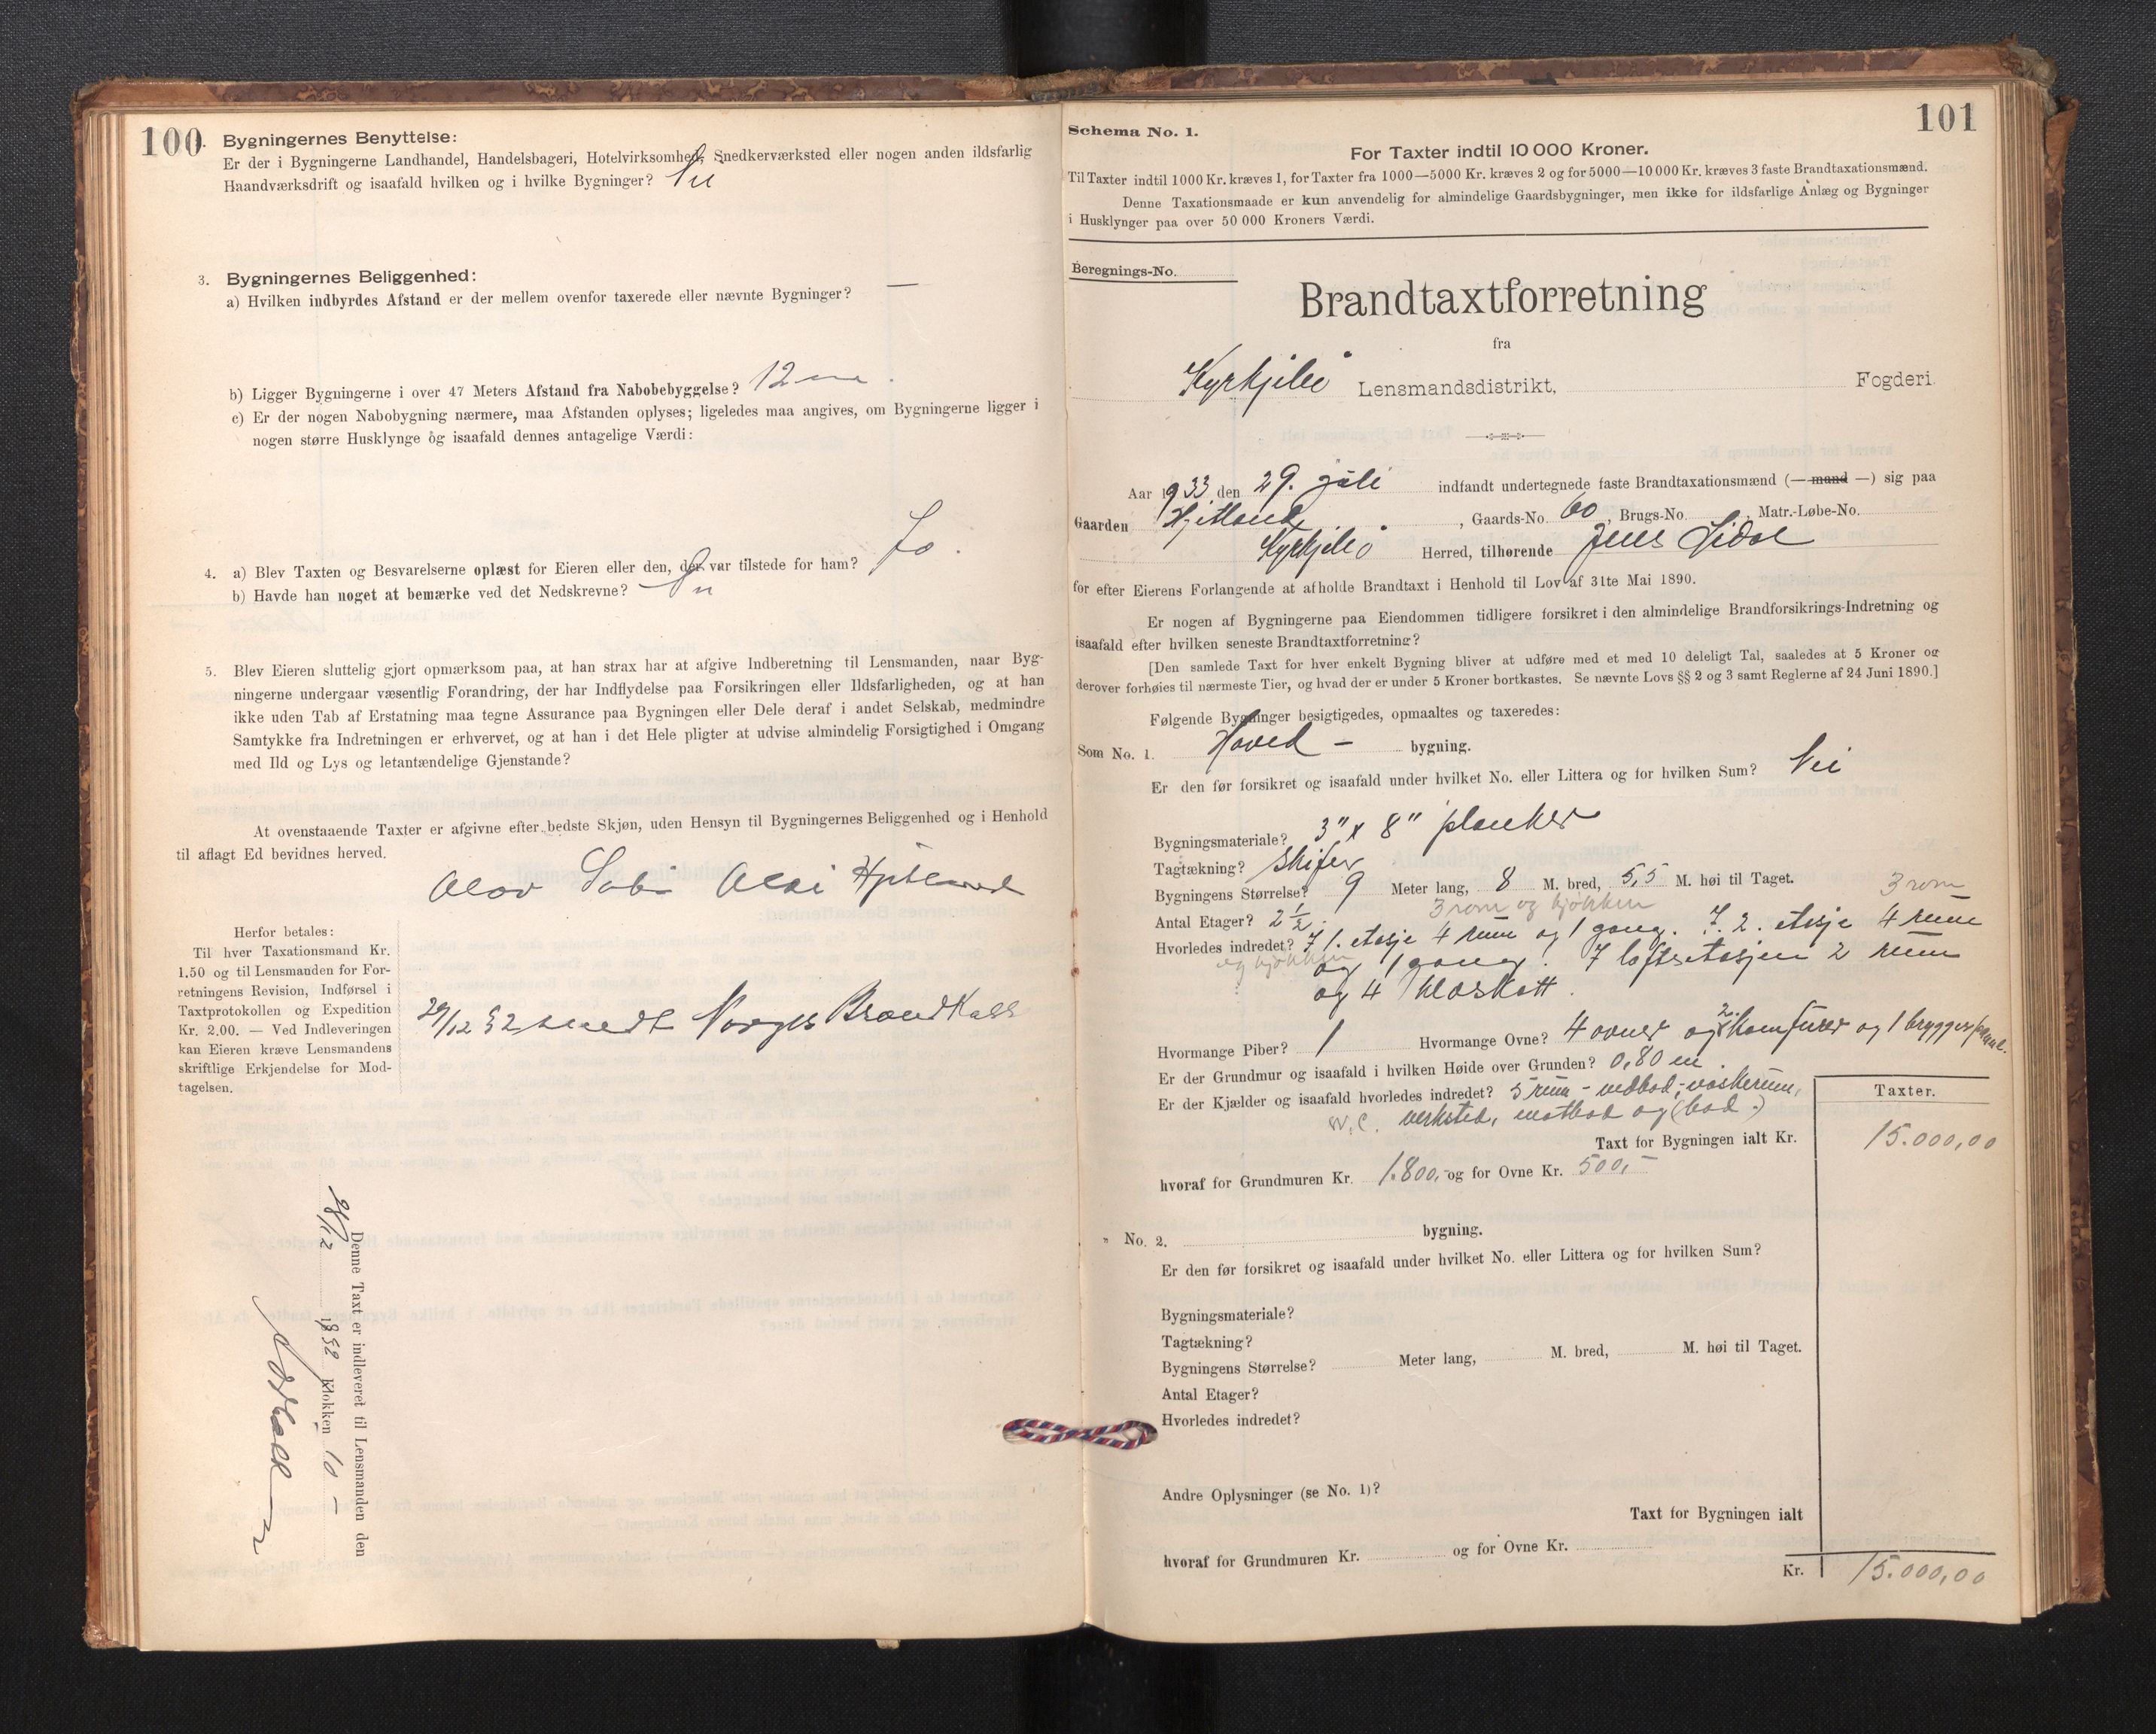 100
. Bygningernes Benyttelse:
Er der i Bygningerne Landhandel, Handelsbageri, Hotelvirksomhed, Snedkerværksted eller nogen anden ildsfarlig
Haandværksdrift og isaafald hvilken og i hvilke Bygninger? Nei
3. Bygningernes Beliggenhed:
a) Hvilken indbyrdes Afstand er der mellem ovenfor taxerede eller nævnte Bygninger? —
b) Ligger Bygningerne i over 47 Meters Afstand fra Nabobebyggelse? 12 m.
c) Er der nogen Nabobygning nærmere, maa Afstanden oplyses; ligeledes maa angives, om Bygningerne ligger i
nogen større Husklynge og isaafald dennes antagelige Værdi:
4. a) Blev Taxten og Besvarelserne oplæst for Eieren eller den, der var tilstede for ham? Ja.
b) Havde han noget at bemærke ved det Nedskrevne? Nei
5. Blev Eieren sluttelig gjort opmærksom paa, at han strax har at afgive Indberetning til Lensmanden, naar Byg-
ningerne undergaar væsentlig Forandring, der har Indflydelse paa Forsikringen eller Ildsfarligheden, og at han
ikke uden Tab af Erstatning maa tegne Assurance paa Bygningen eller Dele deraf i andet Selskab, medmindre
Samtykke fra Indretningen er erhvervet, og at han i det Hele pligter at udvise almindelig Forsigtighed i Omgang
med Ild og Lys og letantændelige Gjenstande?
At ovenstaaende Taxter er afgivne efter bedste Skjøn, uden Hensyn til Bygningernes Beliggenhed og i Henhold
til aflagt Ed bevidnes herved.
Olav
Herfor betales:
Til hver Taxationsmand Kr.
1.50 og til Lensmanden for For-
retningens Revision, Indførsel i
Taxtprotokollen og Expedition
Kr. 2.00. — Ved Indleveringen
kan Eieren kræve Lensmandens
skriftlige Erkjendelse for Mod-
tagelsen.
29/12 32 sendt Norges Brandkasse
Denne Taxt er indleveret til Lensmanden den
28/12 1932 Klokken 10 –
101
Schema No. 1.
For Taxter indtil 10 000 Kroner.
Til Taxter indtil 1000 Kr. kræves 1, for Taxter fra 1000—5000 Kr. kræves 2 og for 5000—10 000 Kr. kræves 3 faste Brandtaxationsmænd.
Denne Taxationsmaade er kun anvendelig for almindelige Gaardsbygninger, men ikke for ildsfarlige Anlæg og Bygninger
i Husklynger paa over 50 000 Kroners Værdi.
Beregnings-No.
Brandtaxtforretning
fra
Kyrkjebø Lensmandsdistrikt, Fogderi.
Aar 1933 den 29. juli indfandt undertegnede faste Brandtaxationsmænd (—mand —) sig paa
Gaarden Hjetland, Gaards-No. 60, Brugs-No. , Matr.-Løbe-No.
Kyrkjebø Herred, tilhørende Jens Lidal
for efter Eierens Forlangende at afholde Brandtaxt i Henhold til Lov af 31te Mai 1890.
Er nogen af Bygningerne paa Eiendommen tidligere forsikret i den almindelige Brandforsikrings-Indretning og
isaafald efter hvilken seneste Brandtaxtforretning?
[Den samlede Taxt for hver enkelt Bygning bliver at udføre med et med 10 deleligt Tal, saaledes at 5 Kroner og
derover forhøies til nærmeste Tier, og hvad der er under 5 Kroner bortkastes. Se nævnte Lovs §§ 2 og 3 samt Reglerne af 24 Juni 1890.]
Følgende Bygninger besigtigedes, opmaaltes og taxeredes:
Som No. 1. Hoved – bygning.
Er den før forsikret og isaafald under hvilket No. eller Littera og for hvilken Sum? Nei
Bygningsmateriale? 3" x 8" planker
Tagtækning? Skifer
Bygningens Størrelse? 9 Meter lang, 8 M. bred, 5,5 M. høi til Taget.
3 rom og kjøkken 3 rom
Antal Etager? 2 1/2.
Hvorledes indredet? I 1. etasje 4 rum og 1 gang. I. 2. etasje 4 rum
og kjøkken og 1 gang. I loftsetasjen 2 rum
og 4 kleskott.
Hvormange Piber? 1 Hvormange Ovne? 4 ovner og 2 komfurer og 1 bryggepanne.
Er der Grundmur og isaafald i hvilken Høide over Grunden? 0,80 m.
Er der Kjælder og isaafald hvorledes indredet? 5 rum – vedbod, vaskerum,
W.C. verksted, matbod og (bod.)
Taxter.
Taxt for Bygningen ialt Kr. 15.000,00
hvoraf for Grundmuren Kr. 1.800,- og for Ovne Kr. 500,-
" No. 2. bygning.
Er den før forsikret og isaafald under hvilket No. eller Littera og for hvilken Sum?
Bygningsmateriale?
Tagtækning?
Bygningens Størrelse? Meter lang, M. bred, M. høi til Taget.
Antal Etager?
Hvorledes indredet?
Andre Oplysninger (se No. 1)?
Taxt for Bygningen ialt
hvoraf for Grundmuren Kr. og for Ovne Kr.
Kr. 15.000,00